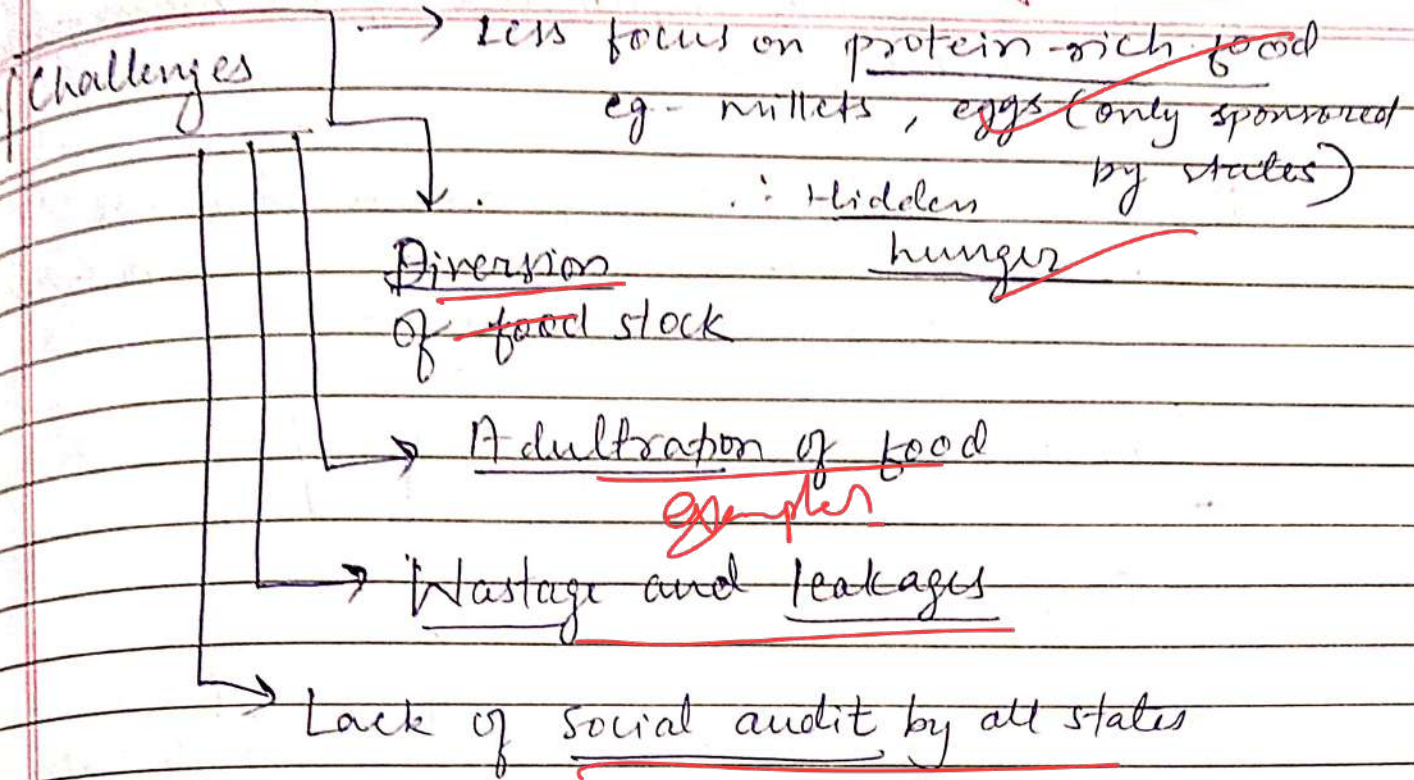 Challenges
→ Less focus on protein-rich food
eg - millets, eggs (only sponsored
by states)
∴ Hidden
hunger
Diversion
of food stock
Adultration of food
examples
Wastage and leakages
Lack of social audit by all states